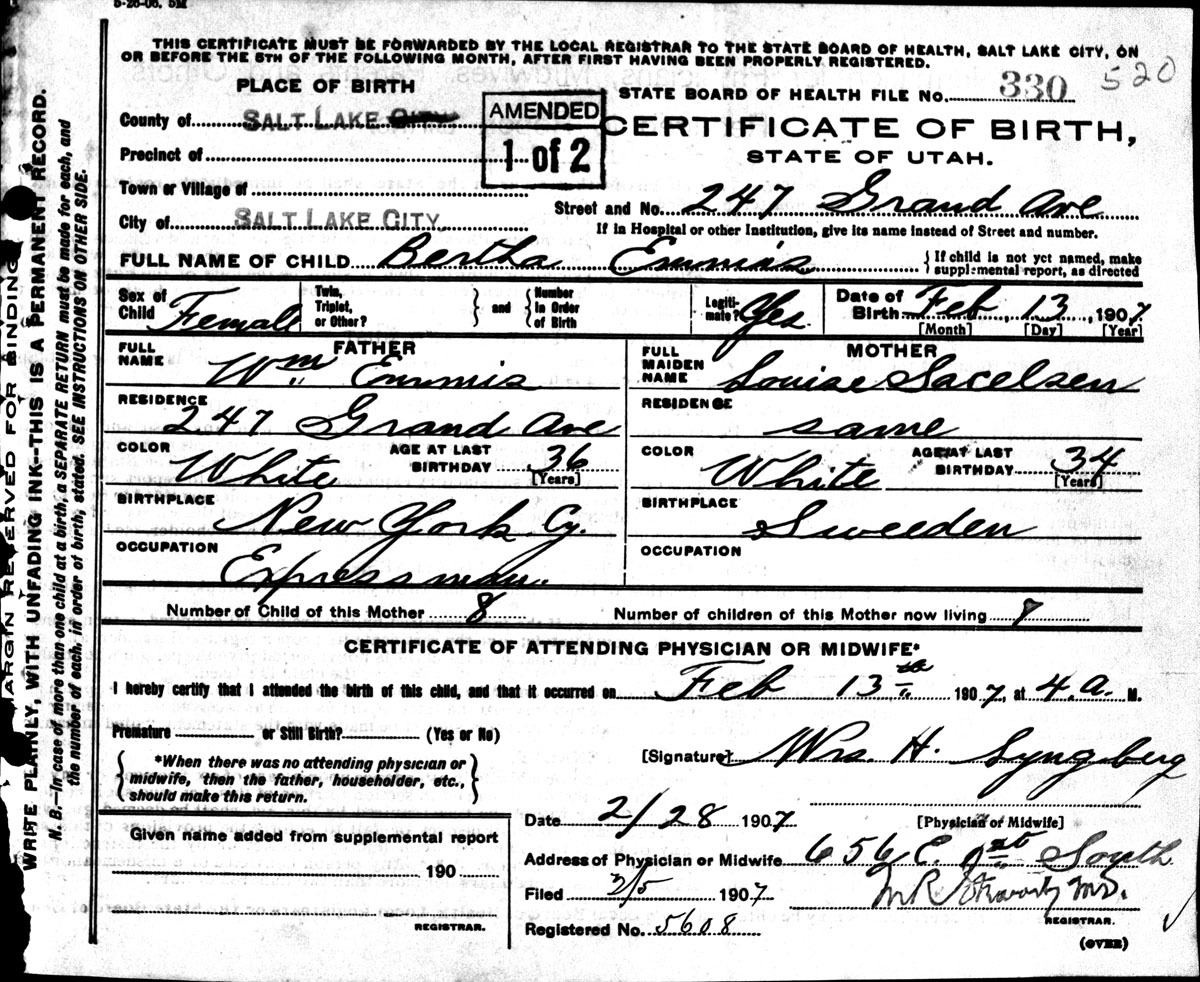 5-26-06. 5M
THIS CERTIFICATE MUST BE FORWARDED BY THE LOCAL REGISTRAR TO THE STATE BOARD OF HEALTH, SALT LAKE CITY, ON
OR BEFORE THE 5TH OF THE FOLLOWING MONTH, AFTER FIRST HAVING BEEN PROPERLY REGISTERED.
520
PLACE OF BIRTH
STATE BOARD OF HEALTH FILE No. 330
County of SALT LAKE CITY
AMENDED
1 of 2
CERTIFICATE OF BIRTH,
STATE OF UTAH.
Precinct of
Town or Village of
Street and No. 247 Grand Ave
City of SALT LAKE CITY
If in Hospital or other Institution, give its name instead of Street and number.
FULL NAME OF CHILD Bertha Emmis
{ If child is not yet named, make
supplemental report, as directed
Sex of
Child Female
Twin,
Triplet,
or Other? } and { Number
in Order
of Birth
Legiti-
mate? Yes
Date of
Birth Feb 13, 1907
[Month] [Day] [Year]
FATHER
FULL
NAME Wm Emmis
RESIDENCE
247 Grand Ave
COLOR White
AGE AT LAST
BIRTHDAY 36
[Years]
BIRTHPLACE
New York Cy.
OCCUPATION
Expressman.
MOTHER
FULL
MAIDEN
NAME Louise Sacelsen
RESIDENCE
same
COLOR White
AGE AT LAST
BIRTHDAY 34
[Years]
BIRTHPLACE
Sweeden
OCCUPATION
Number of Child of this Mother 8
Number of children of this Mother now living
CERTIFICATE OF ATTENDING PHYSICIAN OR MIDWIFE*
I hereby certify that I attended the birth of this child, and that it occurred on Feb 13th 1907, at 4. a. M.
Premature or Still Birth? (Yes or No)
[Signature] Mrs. H. Lyngberg
{ *When there was no attending physician or
midwife, then the father, householder, etc.,
should make this return. }
Date 2/28 1907
[Physician or Midwife]
Given name added from supplemental report
190
REGISTRAR.
Address of Physician or Midwife 656 E. 1st South
Filed 3/5 1907
M.D.
REGISTRAR.
Registered No. 5608
(OVER)
MARGIN RESERVED FOR BINDING
WRITE PLAINLY, WITH UNFADING INK--THIS IS A PERMANENT RECORD.
N. B.--In case of more than one child at a birth, a SEPARATE RETURN must be made for each, and
the number of each, in order of birth, stated. SEE INSTRUCTIONS ON OTHER SIDE.